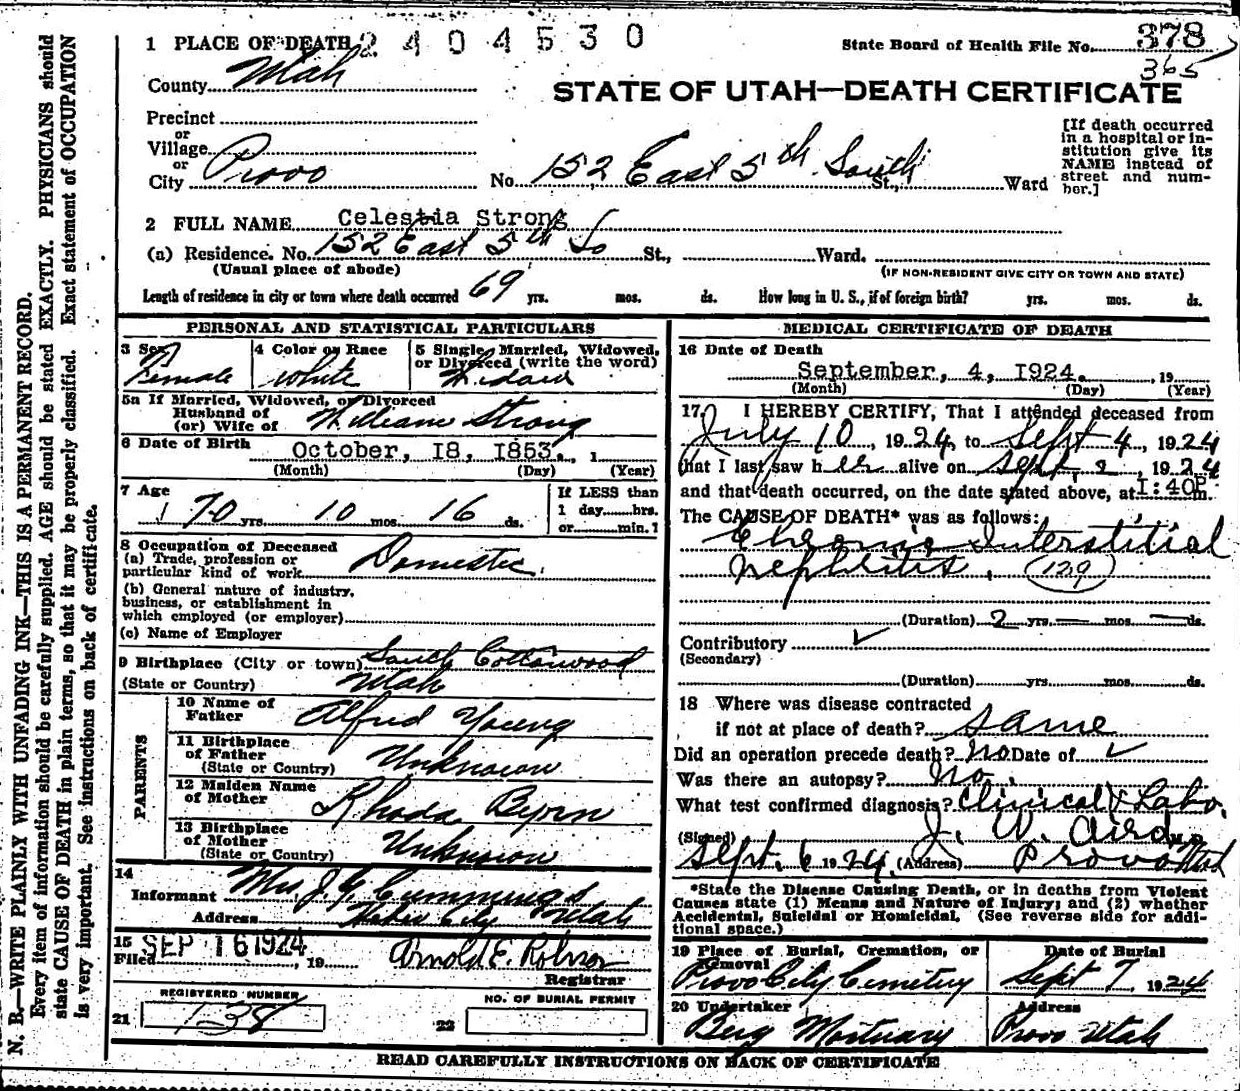 1 PLACE OF DEATH 2404530
State Board of Health File No. 378
365
County Utah
STATE OF UTAH—DEATH CERTIFICATE
Precinct
or
Village
or
City Provo No. 152 East 5th South St., Ward
[If death occurred
in a hospital or in-
stitution give its
NAME instead of
street and num-
ber.]
2 FULL NAME Celestia Strong
(a) Residence. No. 152 East 5th So St., Ward.
(Usual place of abode) (IF NON-RESIDENT GIVE CITY OR TOWN AND STATE)
Length of residence in city or town where death occurred 69 yrs. mos. ds. How long in U. S., if of foreign birth? yrs. mos. ds.
PERSONAL AND STATISTICAL PARTICULARS
3 Sex 4 Color or Race 5 Single, Married, Widowed,
or Divorced (write the word)
Female white Widow
5a If Married, Widowed, or Divorced
Husband of
(or) Wife of William Strong
6 Date of Birth October, 18, 1853., 1
(Month) (Day) (Year)
7 Age 70 yrs. 10 mos. 16 ds.
If LESS than
1 day hrs.
or min.?
8 Occupation of Deceased
(a) Trade, profession or
particular kind of work Domestic.
(b) General nature of industry,
business, or establishment in
which employed (or employer)
(c) Name of Employer
9 Birthplace (City or town) South Cottonwood
(State or Country) Utah
PARENTS
10 Name of
Father Alfred Young
11 Birthplace
of Father
(State or Country) Unknown
12 Maiden Name
of Mother Rhoda Byrn
13 Birthplace
of Mother
(State or Country) Unknown
14
Informant Mrs. J. G. Cummings
Address Heber City Utah
15 SEP 16 1924
Filed , 19 Arnold E. Robison
Registrar
REGISTERED NUMBER NO. OF BURIAL PERMIT
21 138 22
MEDICAL CERTIFICATE OF DEATH
16 Date of Death
September, 4, 1924. , 19
(Month) (Day) (Year)
17. I HEREBY CERTIFY, That I attended deceased from
July 10, 1924, to Sept 4, 1924
that I last saw her alive on Sept. 2, 1924
and that death occurred, on the date stated above, at 1:40P m.
The CAUSE OF DEATH* was as follows:
Chronic Interstitial
Nephritis. (129)
(Duration) 2 yrs. — mos. — ds.
Contributory ✓
(Secondary)
(Duration) yrs. mos. ds.
18 Where was disease contracted
if not at place of death? same
Did an operation precede death? no Date of ✓
Was there an autopsy? No.
What test confirmed diagnosis? Clinical & Labo.
(Signed) J. W. Aird M.D.
Sept. 6 1924. (Address) Provo Utah
*State the Disease Causing Death, or in deaths from Violent
Causes state (1) Means and Nature of Injury; and (2) whether
Accidental, Suicidal or Homicidal. (See reverse side for addi-
tional space.)
19 Place of Burial, Cremation, or
Removal Date of Burial
Provo City Cemetery Sept 7, 1924
20 Undertaker Address
Berg Mortuary Provo Utah
READ CAREFULLY INSTRUCTIONS ON BACK OF CERTIFICATE
N. B.—WRITE PLAINLY WITH UNFADING INK—THIS IS A PERMANENT RECORD.
Every item of information should be carefully supplied. AGE should be stated EXACTLY. PHYSICIANS should
state CAUSE OF DEATH in plain terms, so that it may be properly classified. Exact statement of OCCUPATION
is very important. See instructions on back of certificate.